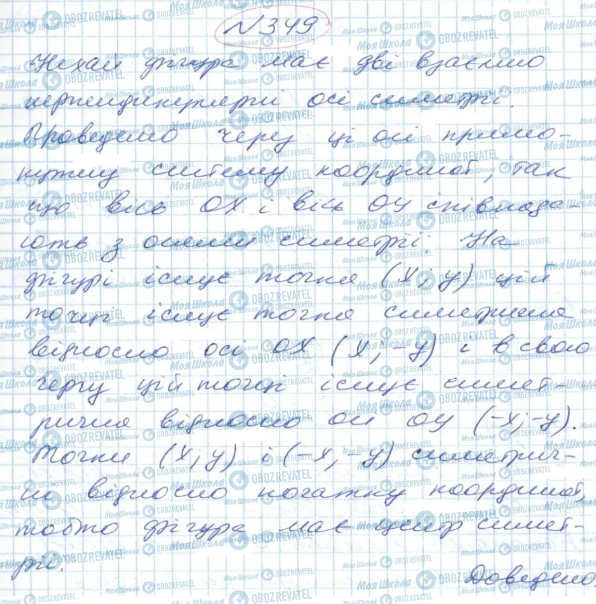 №349
Нехай фігура має дві взаємно
перпендикулярні осі симетрії.
Проведемо через ці осі прямо-
кутну систему координат, так
що вісь OX і вісь OY співпада-
ють з осями симетрії. На
фігурі існує точка (x, y) цій
точці існує точка симетрична
відносно осі OX (x; -y) і в свою
чергу цій точці існує симет-
рична відносно осі OY (-x; -y).
Точки (x, y) і (-x, -y) симетрич-
ні відносно початку координат,
тобто фігура має центр симет-
рії.
Доведено.